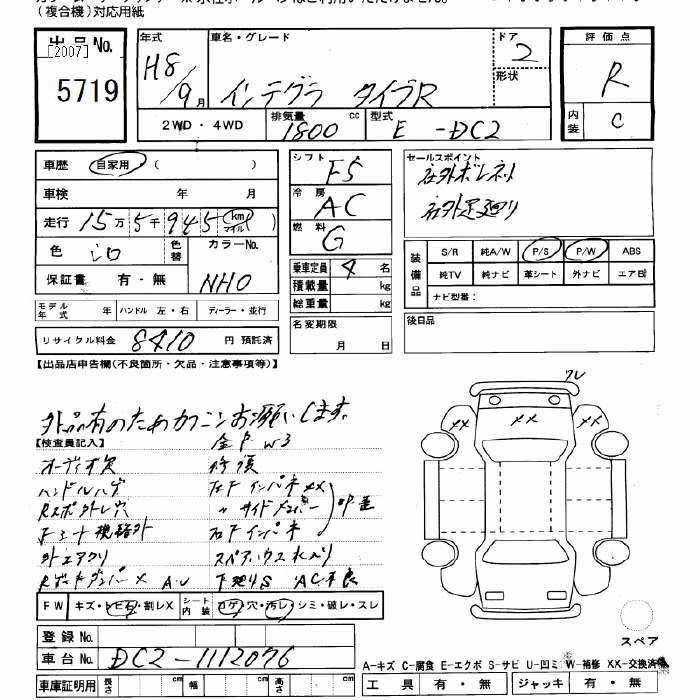 (複合機)対応用紙
出品No.
[2007]
5719
年式
H8
9月
車名・グレード
インテグラ タイプR
ドア
2
形状
評価点
R
内装
C
2WD・4WD
排気量
1800
cc
型式
E -DC2
車歴 自家用 ( )
車検 年 月
走行 15万5千945(km マイル)
色 シロ
色替
カラーNo.
NHO
保証書 有・無
モデル年式 年 ハンドル 左・右 ディーラー・並行
リサイクル料金 8410 円 預託済
シフト
F5
冷房
AC
燃料
G
乗車定員 4 名
積載量 kg
総重量 kg
名変期限
月 日
セールスポイント
社外ボンネット
社外足廻り
装備品
S/R 純A/W P/S P/W ABS
純TV 純ナビ 革シート 外ナビ エアB
ナビ型番:
後日品
【出品店申告欄(不良箇所・欠品・注意事項等)】
外品有のためカクニンお願いします。
【検査員記入】
全P W3
オーディオ欠
修復
ハンドルハゲ
右Fインパネ XX
Rスポ外し穴
〃 サイドメンバー
中歪
右Fインパネ
外エアクリ
AU
下廻りS AC不良
FW キズ・トビ石・割レX
シート内装 コゲ・穴・汚レ・シミ・破レ・スレ
登録No.
車台No. DC2-1112076
車庫証明用 長さ cm 幅 cm 高さ cm
ワレ
XX
XX
XX
スペア
A-キズ C-腐食 E-エクボ S-サビ U-凹ミ W-補修 XX-交換済
工具 有・無 ジャッキ 有・無